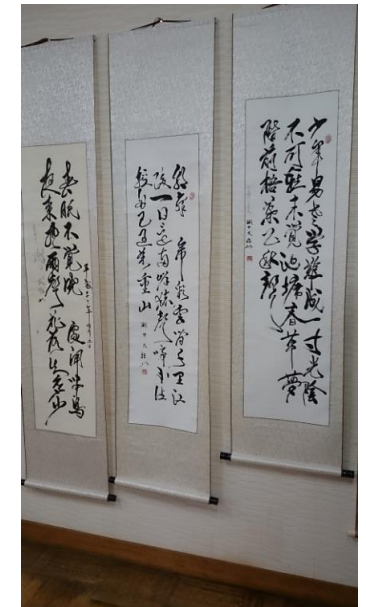 少年易老学難成一寸光陰
不可軽未覚池塘春草夢
階前梧葉已秋声
朝辞白帝彩雲間千里江
陵一日還両岸猿声啼不住
軽舟已過万重山
春眠不覚暁処処聞啼鳥
夜来風雨声花落知多少